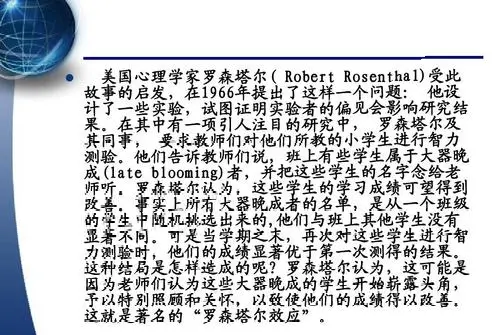 美国心理学家罗森塔尔( Robert Rosenthal)受此
故事的启发，在1966年提出了这样一个问题： 他设
计了一些实验，试图证明实验者的偏见会影响研究结
果。在其中有一项引人注目的研究中， 罗森塔尔及
其同事， 要求教师们对他们所教的小学生进行智力
测验。他们告诉教师们说，班上有些学生属于大器晚
成(late blooming)者，并把这些学生的名字念给老
师听。罗森塔尔认为，这些学生的学习成绩可望得到
改善。事实上所有大器晚成者的名单，是从一个班级
的学生中随机挑选出来的,他们与班上其他学生没有
显著不同。可是当学期之末，再次对这些学生进行智
力测验时，他们的成绩显著优于第一次测得的结果。
这种结局是怎样造成的呢？罗森塔尔认为，这可能是
因为老师们认为这些大器晚成的学生开始崭露头角，
予以特别照顾和关怀，以致使他们的成绩得以改善。
这就是著名的“罗森塔尔效应”。